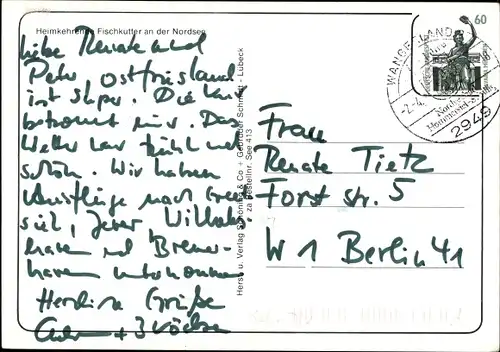 Heimkehrende Fischkutter an der Nordsee
liebe Renate und
Peter, Ostfriesland
ist super. Die Kur
bekommt mir. Das
Wetter war kühl und
schön. Wir haben
Ausflüge nach Greet
siel, Jever Wilhelms-
haven und Bremer-
haven unternommen
Herzliche Grüße
Herst. u. Verlag Schöning & Co + Gebrüder Schmidt - Lübeck
zu Bestellnr. See 413
60
WANGERLAND
2949
Frau
Renate Tietz
Forst str. 5
W 1 Berlin 41